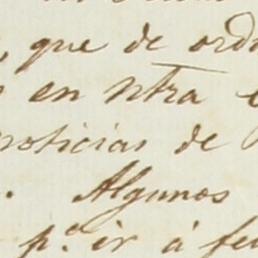 , que de ord
en ntra e
noticias de
. Algunos
p.ª ir á fe